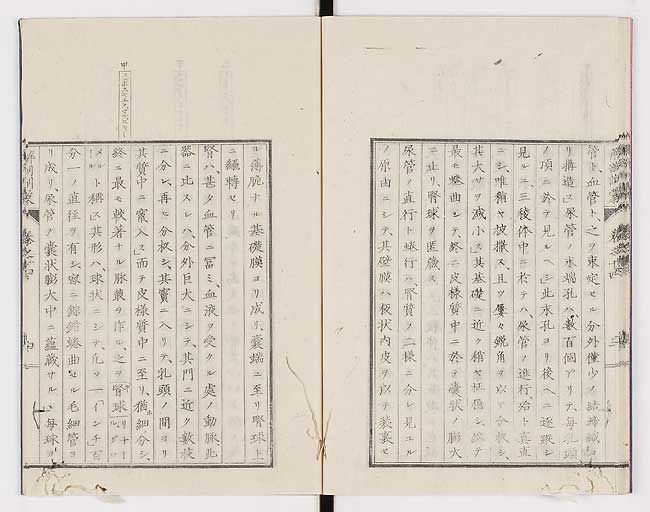 管ト、血管ト、之ヲ束定セル分外僅少ノ結締織ヨ
リ構造ス尿管ノ末端孔ハ数百個アリテ、毎乳頭
ノ頂ニ於テ見ル」此末孔ヨリ後ヘニ逐蹤シ
見ルニ三稜体中ニ於テハ、尿管ノ進行殆ト真直
ニシ、唯稍ヤ披散ス、且ツ屢々鋭角ヲ以テ分枝シ、
其大サヲ減小ス其基礎ニ近ク稍ヤ
最モ蜷曲シテ、終ニ皮様質中ニ於テ嚢状ノ膨大
ニ止リ、腎球ヲ匿蔵ス
尿管ノ直行ト蜷行ト腎質ノ二様ニ分レ見ユル
ノ原由ニシテ、其壁膜ハ板状内皮ヲ以テ装裏セ
ル薄脆ナル基礎膜ヨリ成リ、嚢端ニ至リ腎球上
ニ
腎ハ甚タ血管ニ冨ミ、血液ヲ受クル処ノ動脈此
器ニ比スレハ、分外巨大ニシテ、其門ニ近ク数枝
ニ分レ、再ヒ分枝シ、其竇ニ入リテ、乳頭ノ間ヨリ
其質中ニ竄入ス」而テ皮様質中ニ至リ、猶細分シ、
終ニ最モ較著ナル脉叢ヲ作ル、之ヲ腎球
ト稱ス其形ハ、球状ニシテ、凡ヲ一「インチ」百
分一ノ直径ヲ有シ、密ニ錯綜蜷曲セル毛細管ヨ
リ成リ、尿管ノ嚢状膨大中ニ蘊蔵サル」毎球ヨ
解剖訓蒙
巻之十四